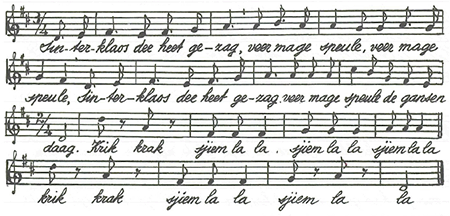 Sin-ter-klaos dee heet ge-zag, veer mage speule, veer mage
speule, Sin-ter-klaos dee heet ge-zag veer mage speule de gansen
daag. Krik krak sjiem la la. sjiem la la sjiem la la
krik krak sjiem la la sjiem la la